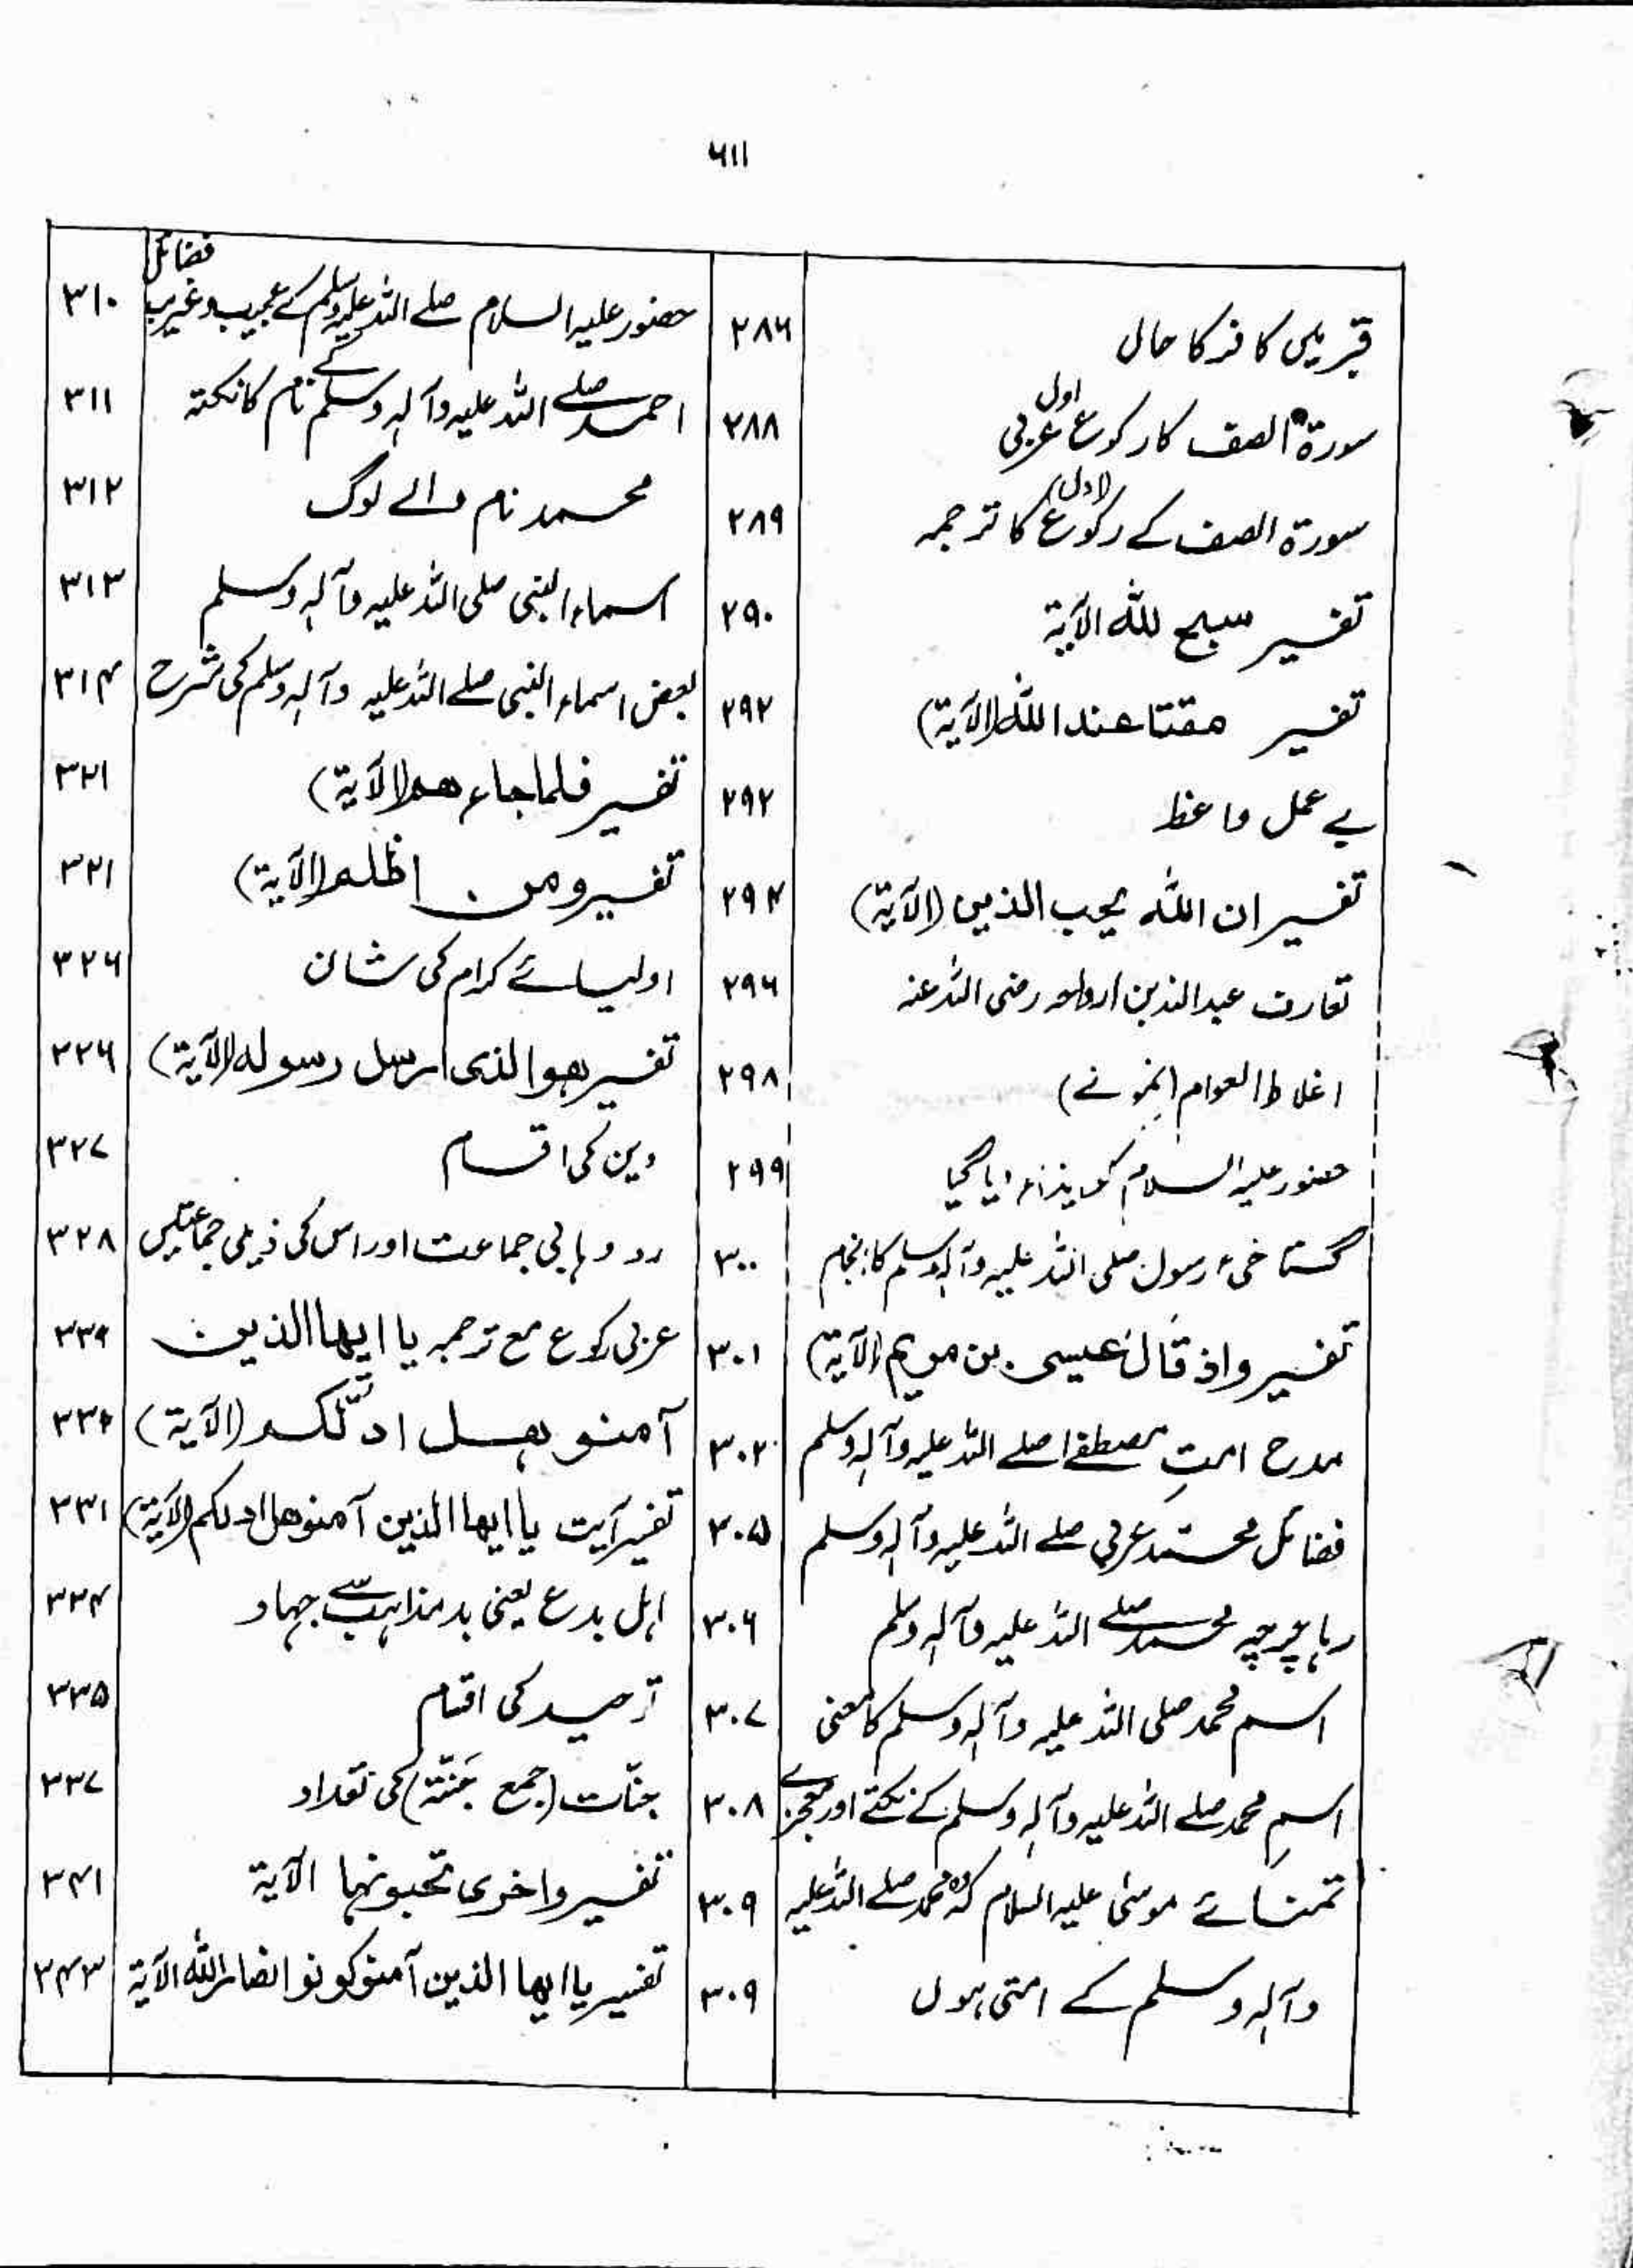 ۶۱۱
قبر میں کافر کا حال ۲۸۶
سورۃ الصف کا رکوع اول عربی ۲۸۸
سورۃ الصف کے رکوع (اول) کا ترجمہ ۲۸۹
تفسیر سبح للہ الآیۃ ۲۹۰
تفسیر مقتا عند اللہ (الآیۃ) ۲۹۲
بے عمل واعظ ۲۹۲
تفسیر ان اللہ یحب الذین (الآیۃ) ۲۹۴
تعارف عبداللہ بن رضی اللہ عنہ ۲۹۶
اغلاط العوام (نمونے) ۲۹۸
حضور علیہ السلام کو ایذاء دیا گیا ۲۹۹
گستاخیء رسول صلی اللہ علیہ وآلہ وسلم کا انجام ۳۰۰
تفسیر واذ قال عیسی بن مریم (الآیۃ) ۳۰۱
مدح امتِ مصطفےا صلے اللہ علیہ وآلہ وسلم ۳۰۲
فضائل محمّد عربی صلے اللہ علیہ وآلہ وسلم ۳۰۵
رہا چرچہ محمد صلے اللہ علیہ وآلہ وسلم ۳۰۶
اسم محمد صلی اللہ علیہ وآلہ وسلم کا معنی ۳۰۷
اسمِ محمد صلے اللہ علیہ وآلہ وسلم کے نکتے اور معجزے ۳۰۸
تمنائے موسٰی علیہ السلام کہ وہ محمد صلے اللہ علیہ ۳۰۹
وآلہ وسلم کے امتی ہوں ۳۰۹
حضور علیہ السلام صلے اللہ علیہ وسلم کے عجیب و غریب فضائل ۳۱۰
احمد صلے اللہ علیہ وآلہ وسلم کے نام کا نکتہ ۳۱۱
محمد نام والے لوگ ۳۱۲
اسماء النبی صلی اللہ علیہ وآلہ وسلم ۳۱۳
بعض اسماء النبی صلے اللہ علیہ وآلہ وسلم کی شرح ۳۱۴
تفسیر فلما جاء ھم (الآیۃ) ۳۲۱
تفسیر ومن اظلم (الآیۃ) ۳۲۱
اولیائے کرام کی شان ۳۲۶
تفسیر ہو الذی ارسل رسولہ (الآیۃ) ۳۲۶
دین کی اقسام ۳۲۷
رد وہابی جماعت اور اس کی ذیلی جماعتیں ۳۲۸
عربی رکوع مع ترجمہ یا ایھا الذین ۳۳۹
آمنو ہل ادلّکم (الآیۃ)
تفسیر آیت یا ایھا الذین آمنو ھل ادلکم (الآیۃ) ۳۳۱
اہل بدع یعنی بد مذاہب سے جہاد ۳۳۴
توحید کی اقسام ۳۳۵
جنّات (جمع جَنّۃ) کی تعداد ۳۳۷
تفسیر واخری تحبونھا الآیۃ ۳۴۱
تفسیر یا ایھا الذین آمنو کونو انصار اللہ الآیۃ ۳۴۳